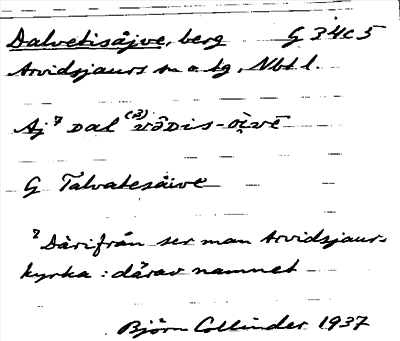 Dalvetisåjve, berg G 34c5
Arvidsjaurs sn o tg, Nbt l.
Aj⁷ Dal⁽²⁾vɔ̄Dis-ōi̯vē
G Talvatesåive
⁷ Därifrån ser man Arvidsjaurs
kyrka: därav namnet
Björn Collinder 1937